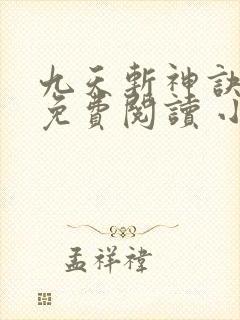 九天斬神訣
免費閱讀 小
孟祥禕